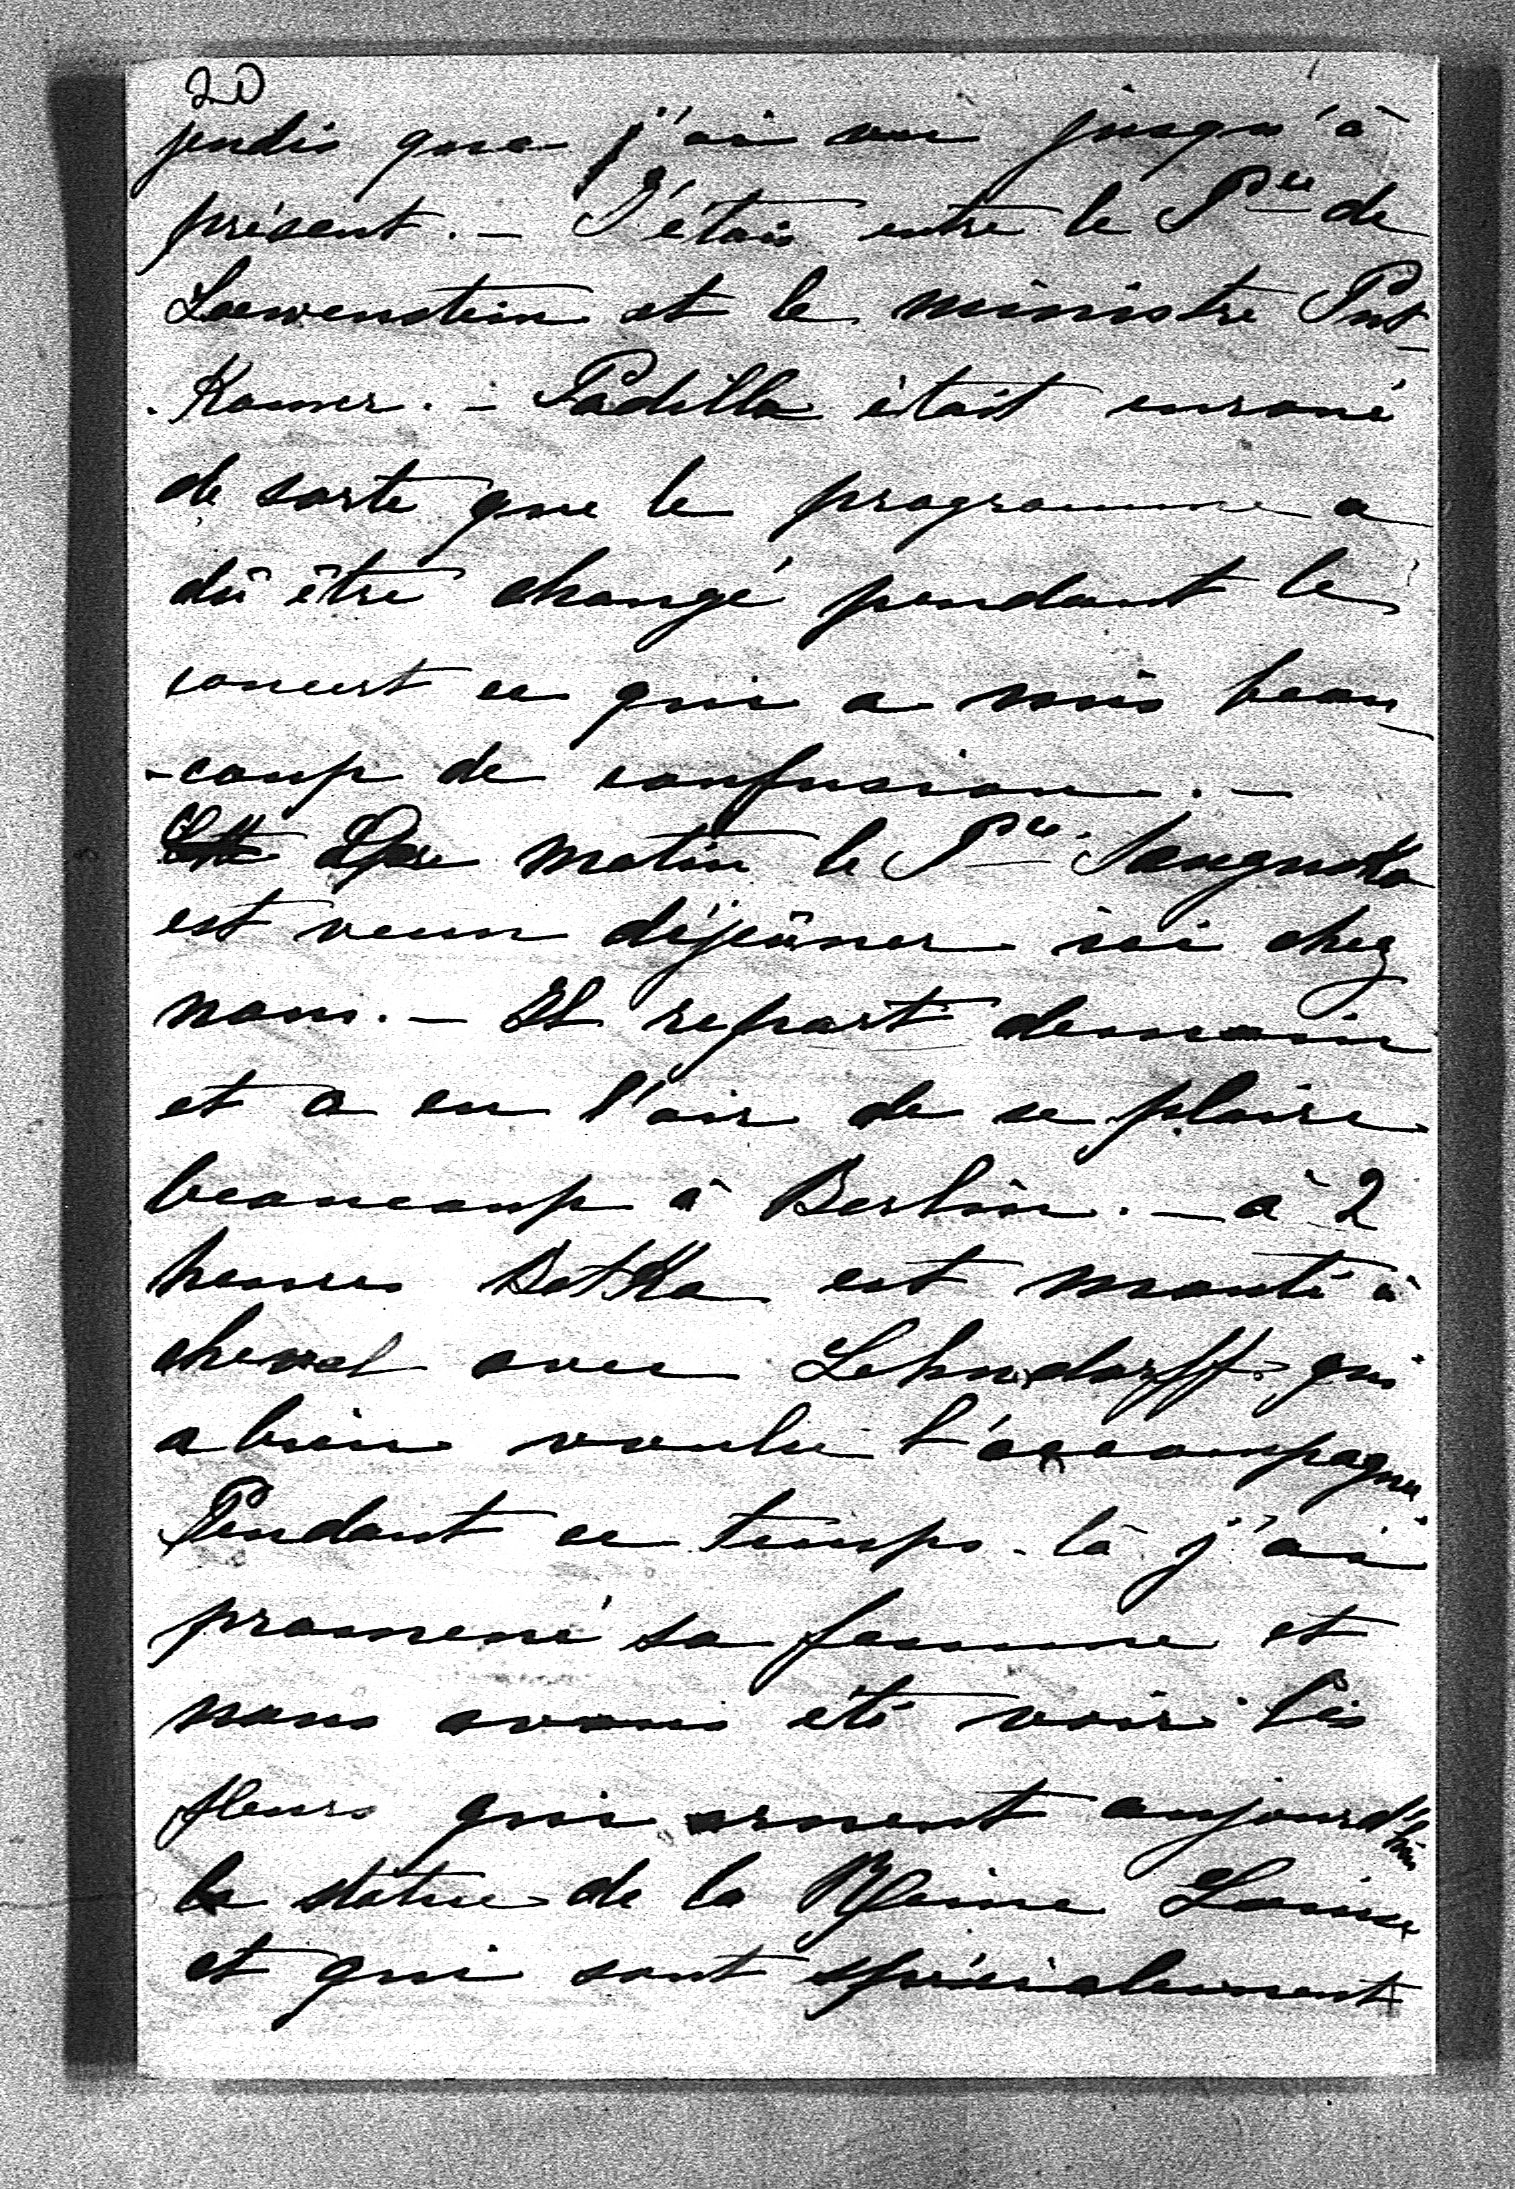 20
jeudis que j'ai vu jusqu'à
présent. — J'étais entre le Pce de
Loewenstein et le ministre Put
-Kamer. — Padilla était enroué
de sorte que le programme a
dû être changé pendant le
concert ce qui a mis beau
-coup de confusion. —
matin le Pce. Sanguszko
est venu déjeûner ici chez
nous. — Il repart demain
et a eu l'air de se plaire
beaucoup à Berlin. — à 2
heures Betka est monté à
cheval avec Lehndorff qui
a bien voulu l'accompagner
Pendant ce temps-là j'ai
promené sa femme et
nous avons été voir les
fleurs qui ornent aujourd'hui
la statue de la Reine Louise
et qui sont spécialement